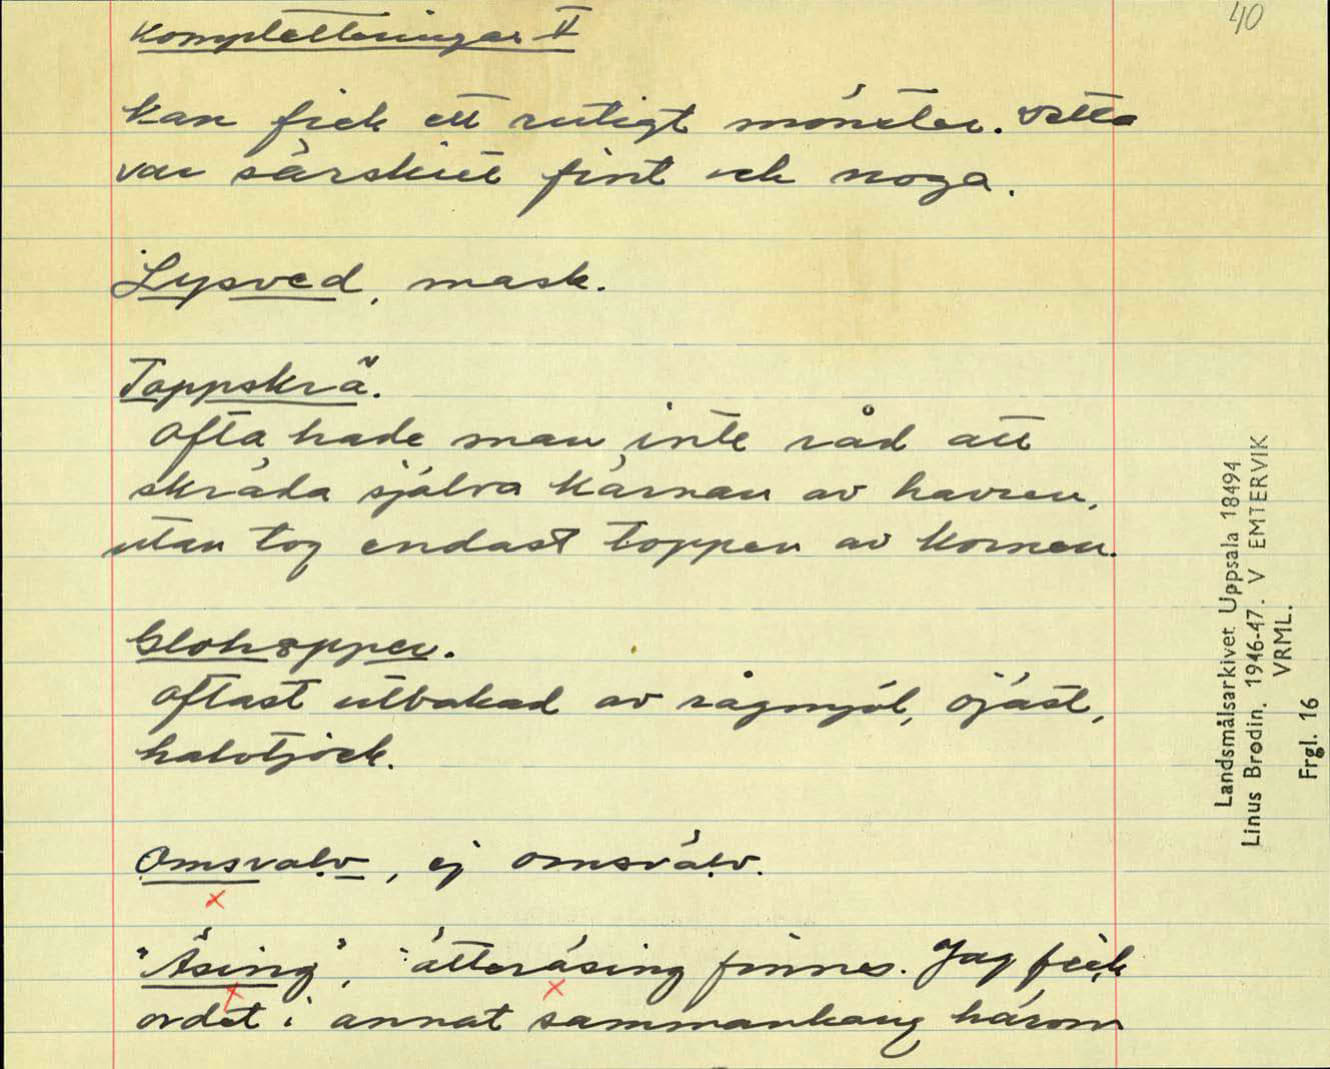 40
Kompletteringar II
kan fick ett rutigt mönster. Detta
var särskilt fint och noga.
Lysved, mask.
Toppskrä.
Ofta hade man inte råd att
skräda själva kärnan av havren,
utan tog endast toppen av kornen.
Glohoppen.
Oftast utbakad av rågmjöl, ojäst,
halvtjock.
Omsvalv, ej omsvälv.
"Äsing", åtteräsing finnes. Jag fick
ordet i annat sammanhang härom
Landsmålsarkivet Uppsala 18494
Linus Brodin. 1946-47. V EMTERVIK
VRML.
Frgl. 16